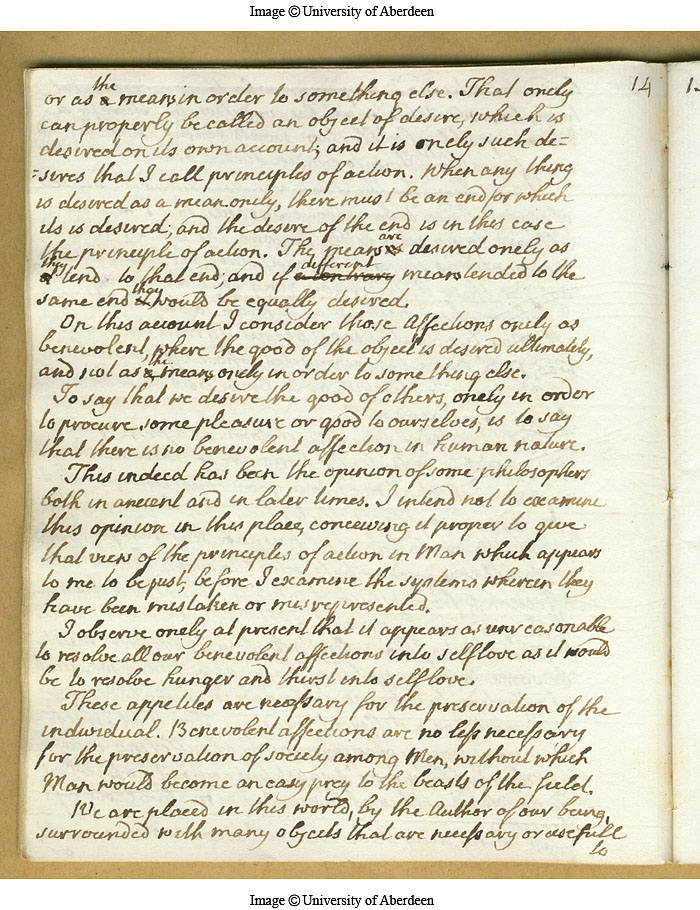 Image © University of Aberdeen
14
or as the means in order to something else. That onely
can properly be called an object of desire, which is
desired on its own account; and it is onely such de=
=sires that I call principles of action. When any thing
is desired as a mean onely, there must be an end for which
its is desired; and the desire of the end is in this case
the principle of action. The means are desired onely as
they tend to that end; and if different a contrary means tended to the
same end they would be equally desired.
On this account I consider those Affections onely as
benevolent, where the good of the object is desired ultimately,
and not as the means onely in order to something else.
To say that we desire the good of others, onely in order
to procure some pleasure or good to ourselves, is to say
that there is no benevolent affection in human nature.
This indeed has been the opinion of some philosophers
both in ancient and in later times. I intend not to examine
this opinion in this place, conceiving it proper to give
that view of the principles of action in Man which appears
to me to be just, before I examine the systems wherein they
have been mistaken or misrepresented.
I observe onely at present that it appears as unreasonable
to resolve all our benevolent affections into selflove as it would
be to resolve hunger and thirst into selflove.
These appetites are necessary for the preservation of the
individual. Benevolent affections are no less necessary
for the preservation of society among Men, without which
Man would become an easy prey to the beasts of the field.
We are placed in this world, by the Author of our being,
surrounded with many objects that are necessary or usefull
to
Image © University of Aberdeen